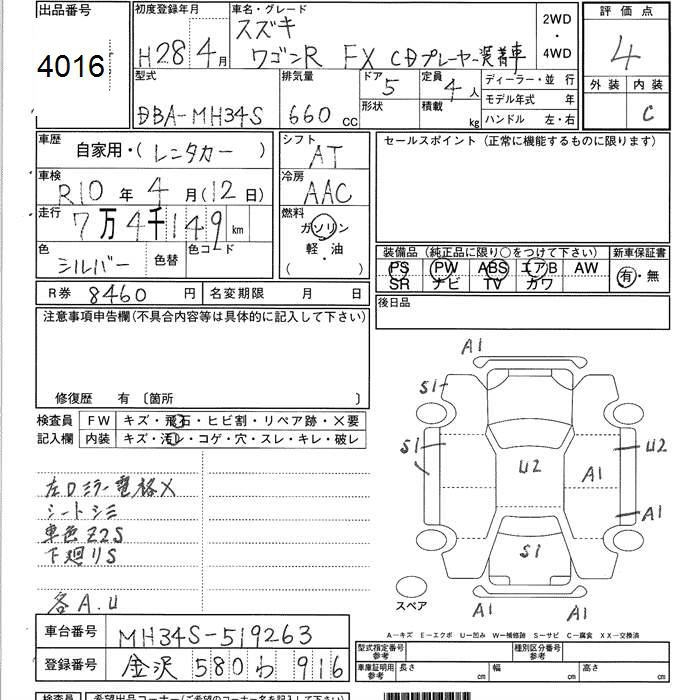 出品番号
4016
初度登録年月
H28年4月
車名・グレード
スズキ
ワゴンR FX CDプレーヤー装着車
2WD
・
4WD
評価点
4
外装 内装
C
型式
DBA-MH34S
排気量
660 cc
ドア 5
形状
定員 4人
積載 kg
ディーラー・並行
モデル年式 年
ハンドル 左・右
車歴
自家用・(レンタカー)
シフト
AT
セールスポイント (正常に機能するものに限ります)
車検
R10年4月(12日)
冷房
AAC
走行
7万4千149km
燃料
ガソリン
軽・油
( )
色
シルバー
色替
色コード
装備品 (純正品に限り○をつけて下さい)
PS PW ABS エアB AW
SR ナビ TV カワ
新車保証書
有・無
R券 8460円
名変期限 月 日
後日品
注意事項申告欄(不具合内容等は具体的に記入して下さい)
修復歴 有 〔箇所 〕
検査員
記入欄
FW キズ・飛石・ヒビ割・リペア跡・×要
内装 キズ・汚レ・コゲ・穴・スレ・キレ・破レ
左Dミラー電格X
シートシミ
車色Z2S
下廻りS
各A.U
A1
S1
S1
U2
U2
A1
A1
S1
A1
A1
スペア
A-キズ E-エクボ U-凹み W-補修跡 S-サビ C-腐食 XX-交換済
車台番号 MH34S-519263
登録番号 金沢 580 わ 916
型式指定番号
参考
種別区分番号
参考
車庫証明用
参考
長さ cm
幅 cm
高さ cm
検査員
希望出品コーナー(ご希望のコーナー名を記入して下さい)